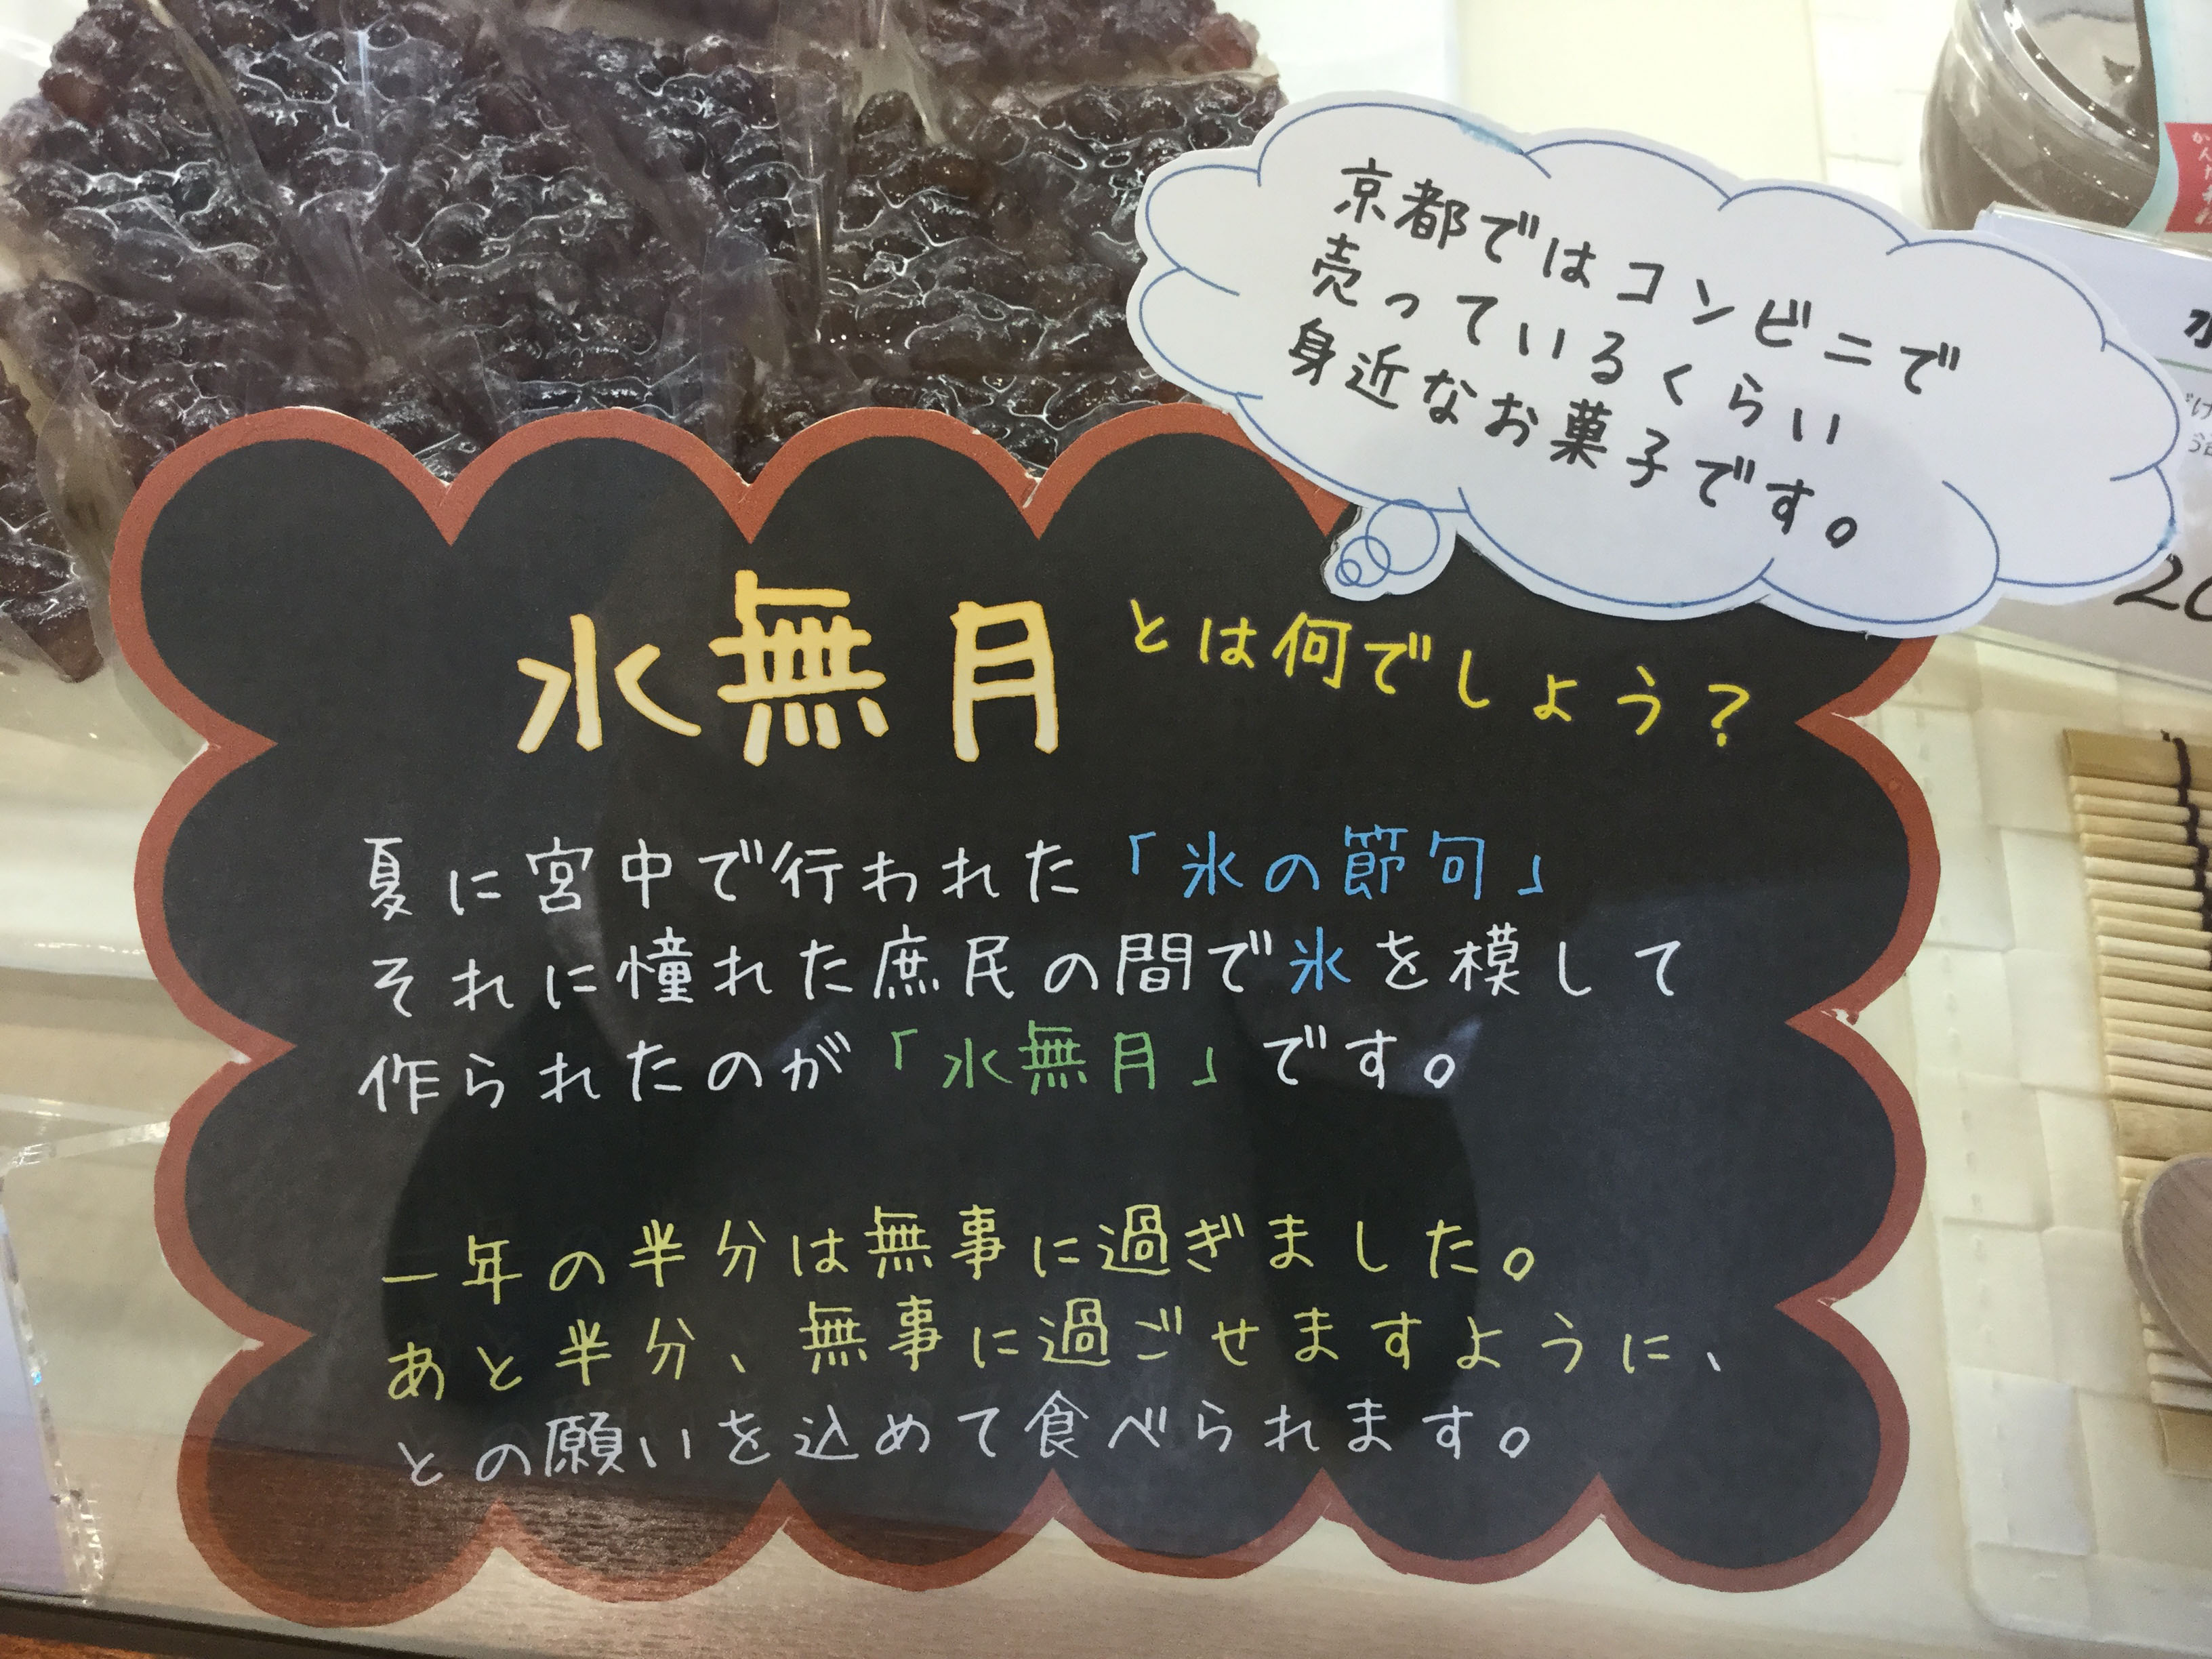 京都ではコンビニで
売っているくらい
身近なお菓子です。
水無月とは何でしょう？
夏に宮中で行われた「氷の節句」
それに憧れた庶民の間で氷を模して
作られたのが「水無月」です。
一年の半分は無事に過ぎました。
あと半分、無事に過ごせますように、
との願いを込めて食べられます。